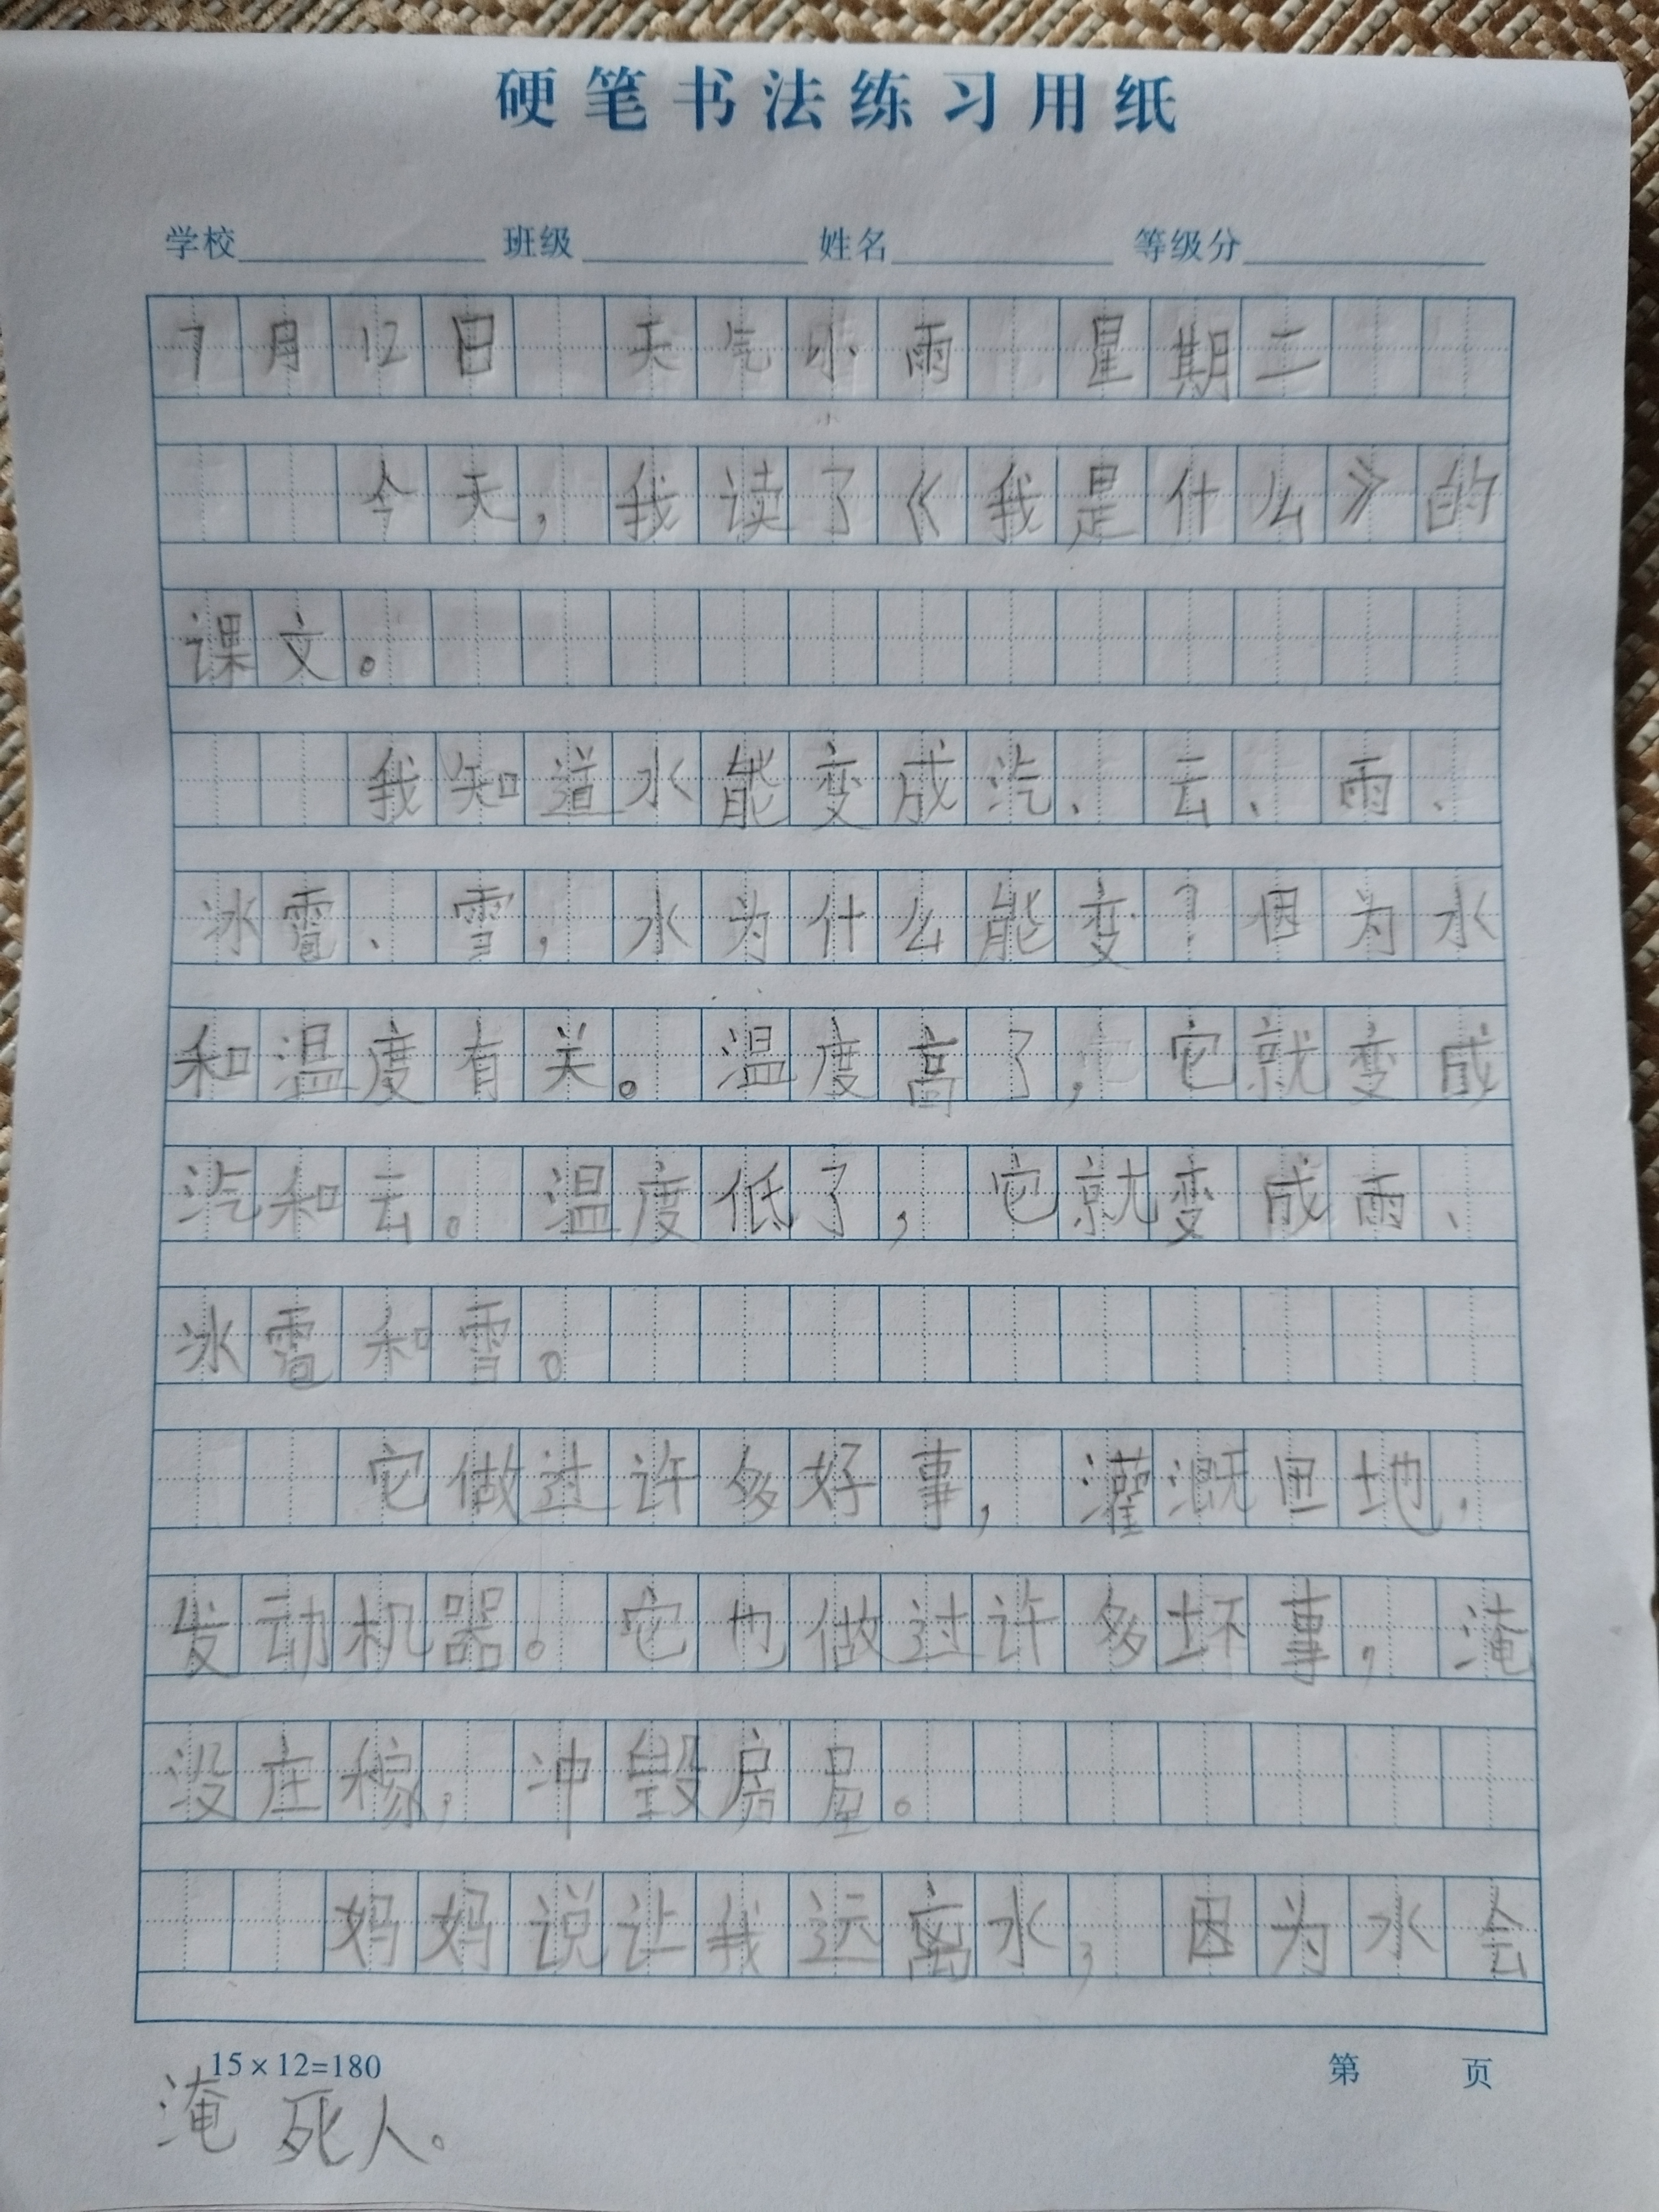 硬笔书法练习用纸
学校 班级 姓名 等级分
7月12日 天气小雨 星期二
今天，我读了《我是什么》的
课文。
我知道水能变成汽、云、雨、
冰雹、雪，水为什么能变？因为水
和温度有关。温度高了，它就变成
汽和云。温度低了，它就变成雨、
冰雹和雪。
它做过许多好事，灌溉田地，
发动机器。它也做过许多坏事，淹
没庄稼，冲毁房屋。
妈妈说让我远离水，因为水会
15×12=180 第 页
淹死人。